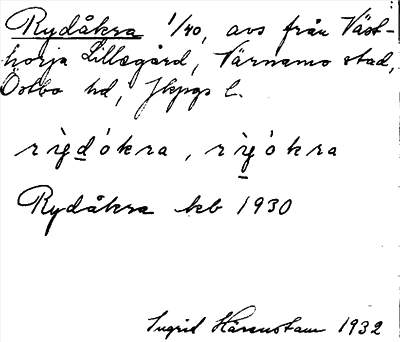 Rydåkra 1/40, avs från Väst-
horja Lillegård, Värnamo stad,
Östbo hd, Jkpgs l.
rìgdókra, rìgókra
Rydåkra kb 1930
Ingrid 1932